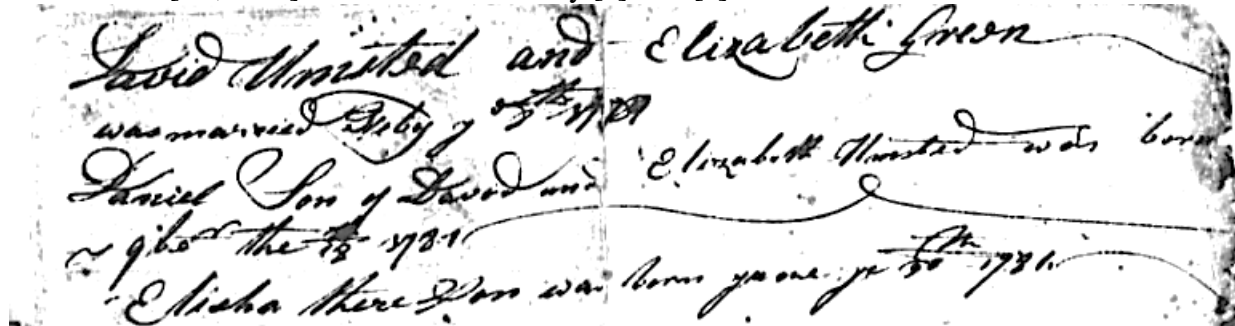 David Umsted and Elizabeth Green
was married Feby y 5th
Daniel Son of David and Elizabeth Umsted was born
9ber the 1781
Elisha there Son was born june ye 30th 1781